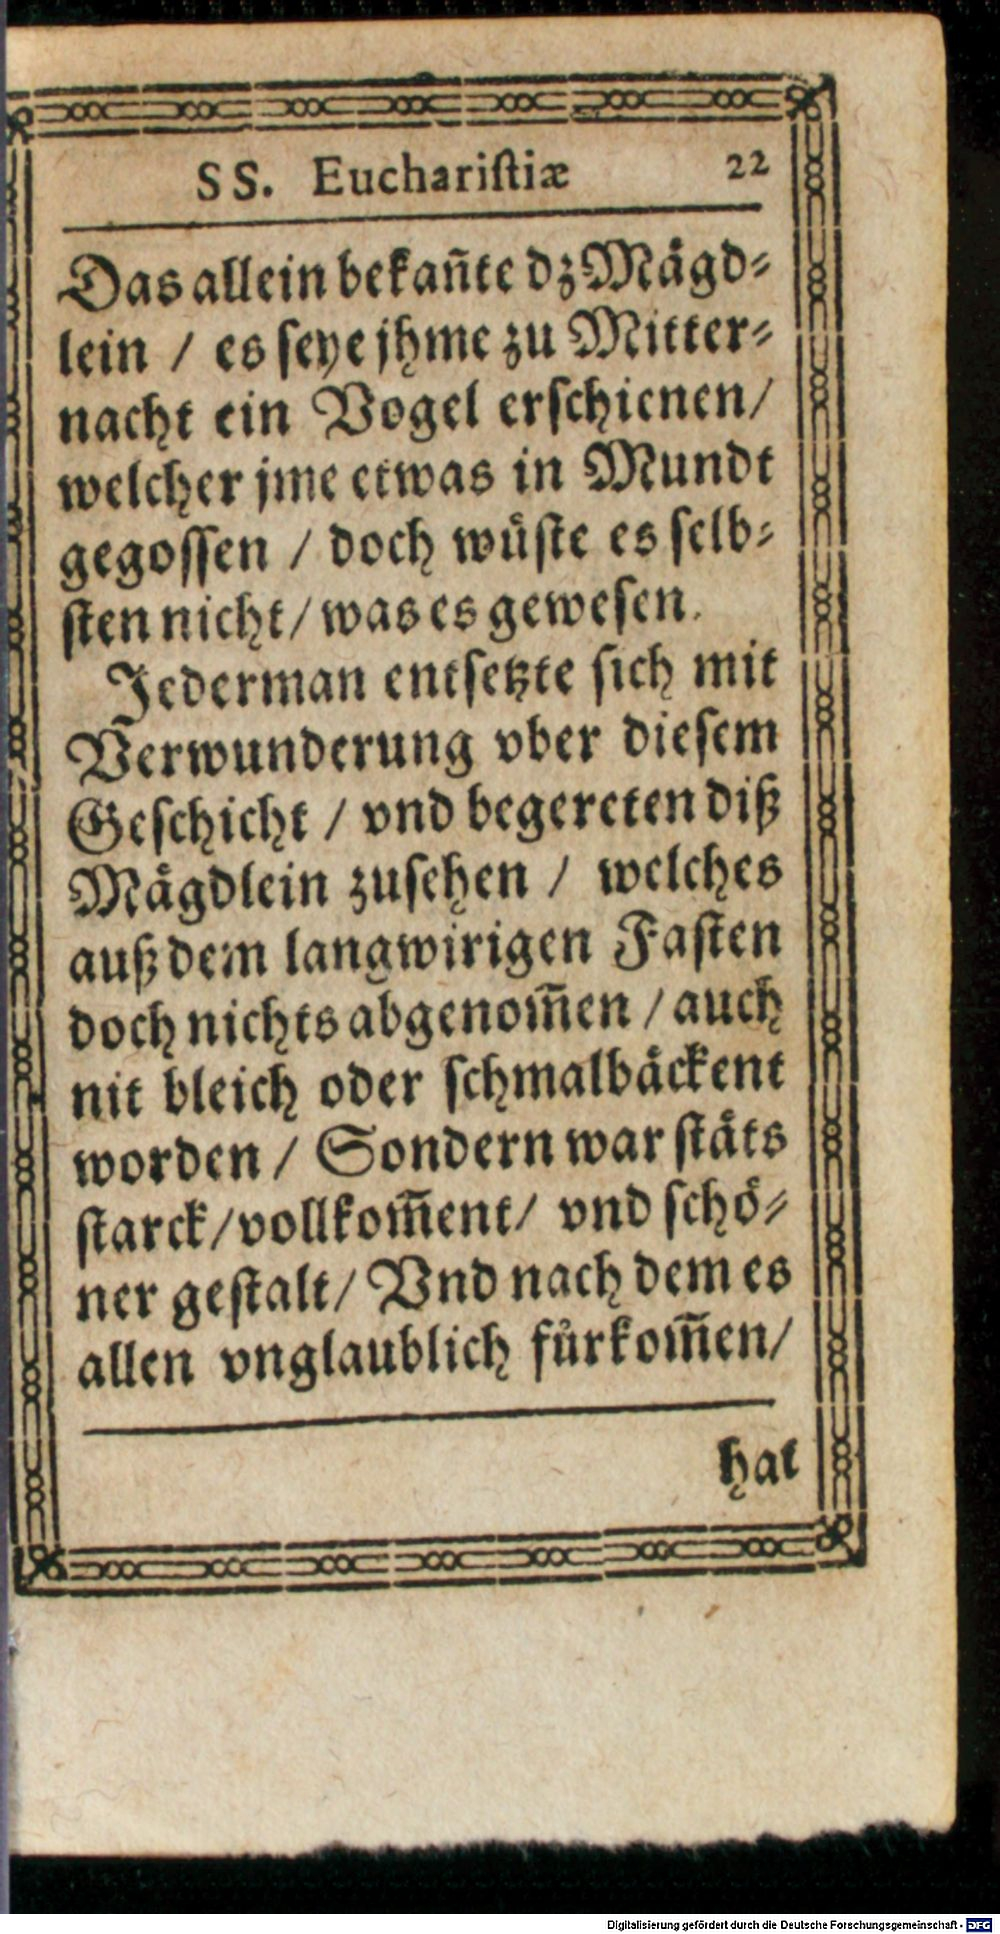 SS. Euchariſtiæ 22
Das allein bekañte dz Mägd⸗
lein / es ſeye jhme zu Mitter⸗
nacht ein Vogel erſchienen/
welcher jme etwas in Mundt
gegoſſen / doch wüſte es ſelb⸗
ſten nicht/ was es geweſen.
Jederman entſetzte ſich mit
Verwunderung vber dieſem
Geſchicht / vnd begereten diß
Mägdlein zuſehen / welches
auß dem langwirigen Faſten
doch nichts abgenom̃en / auch
nit bleich oder ſchmalbäckent
worden / Sondern war ſtäts
ſtarck/vollkom̃ent/ vnd ſchö⸗
ner geſtalt/ Vnd nach dem es
allen vnglaublich fürkom̃en/
hat
Digitalisierung gefördert durch die Deutsche Forschungsgemeinschaft - DFG